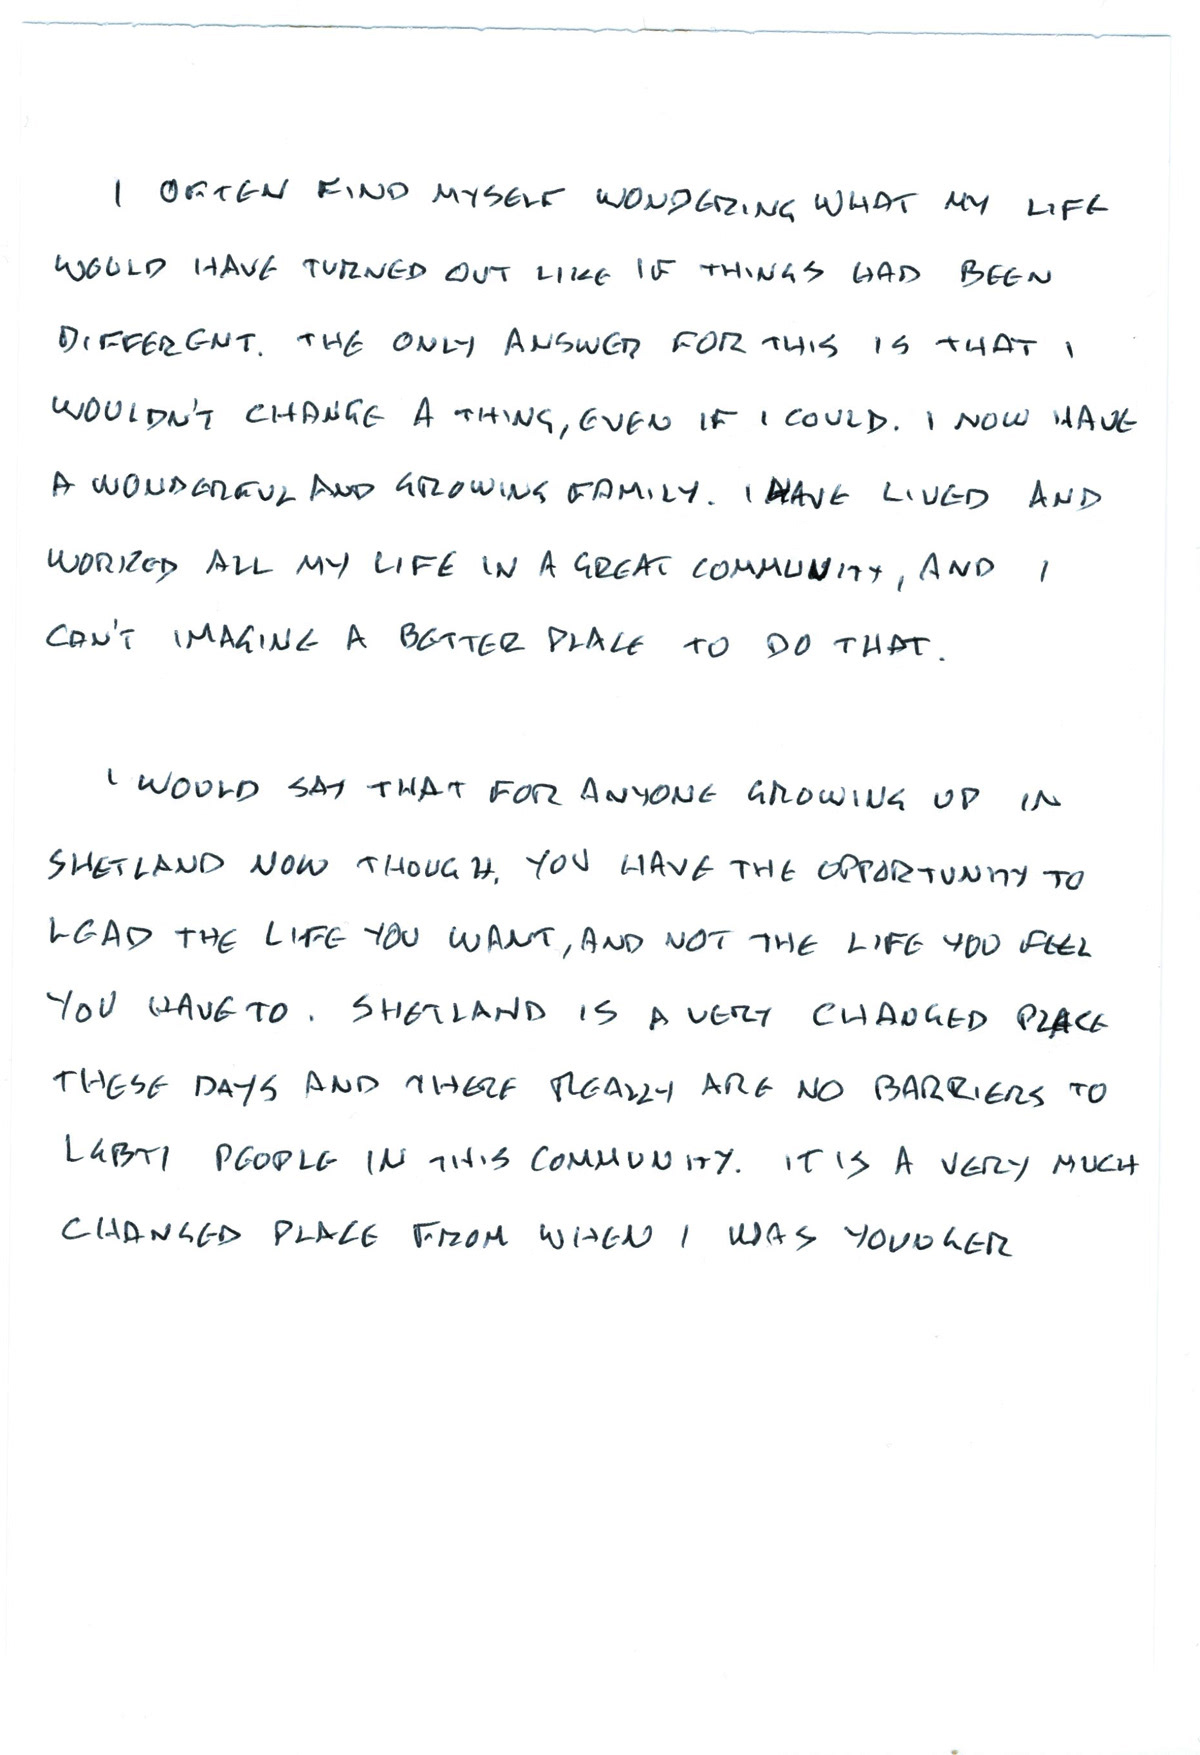 I OFTEN FIND MYSELF WONDERING WHAT MY LIFE
WOULD HAVE TURNED OUT LIKE IF THINGS HAD BEEN
DIFFERENT. THE ONLY ANSWER FOR THIS IS THAT I
WOULDN'T CHANGE A THING, EVEN IF I COULD. I NOW HAVE
A WONDERFUL AND GROWING FAMILY. I HAVE LIVED AND
WORKED ALL MY LIFE IN A GREAT COMMUNITY, AND I
CAN'T IMAGINE A BETTER PLACE TO DO THAT.
I WOULD SAY THAT FOR ANYONE GROWING UP IN
SHETLAND NOW THOUGH, YOU HAVE THE OPPORTUNITY TO
LEAD THE LIFE YOU WANT, AND NOT THE LIFE YOU FEEL
YOU HAVE TO. SHETLAND IS A VERY CHANGED PLACE
THESE DAYS AND THERE REALLY ARE NO BARRIERS TO
LGBTI PEOPLE IN THIS COMMUNITY. IT IS A VERY MUCH
CHANGED PLACE FROM WHEN I WAS YOUNGER